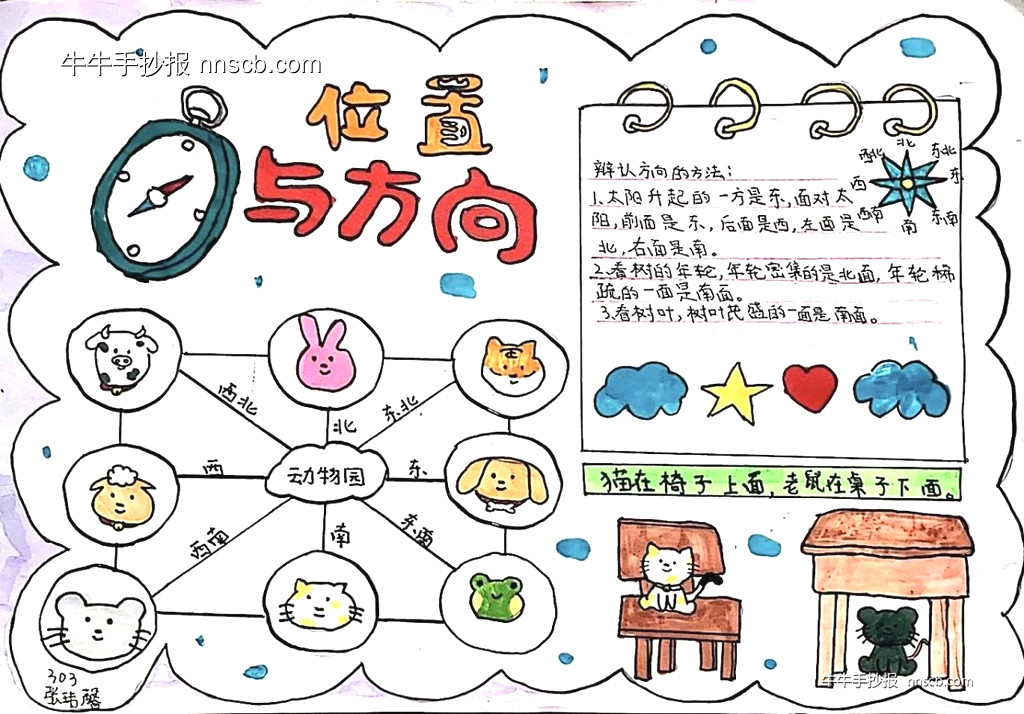 牛牛手抄报 nnscb.com
位置
与方向
辩认方向的方法:
1.太阳升起的一方是东,面对太
阳,前面是东,后面是西,左面是
北,右面是南。
2.看树的年轮,年轮密集的是北面,年轮稀
疏的一面是南面。
3.看树叶,树叶茂盛的一面是南面。
北
西北
东北
西
东
西南
东南
南
西北
北
东北
西
动物园
东
西南
南
东南
猫在椅子上面,老鼠在桌子下面。
303
牛牛手抄报 nnscb.com